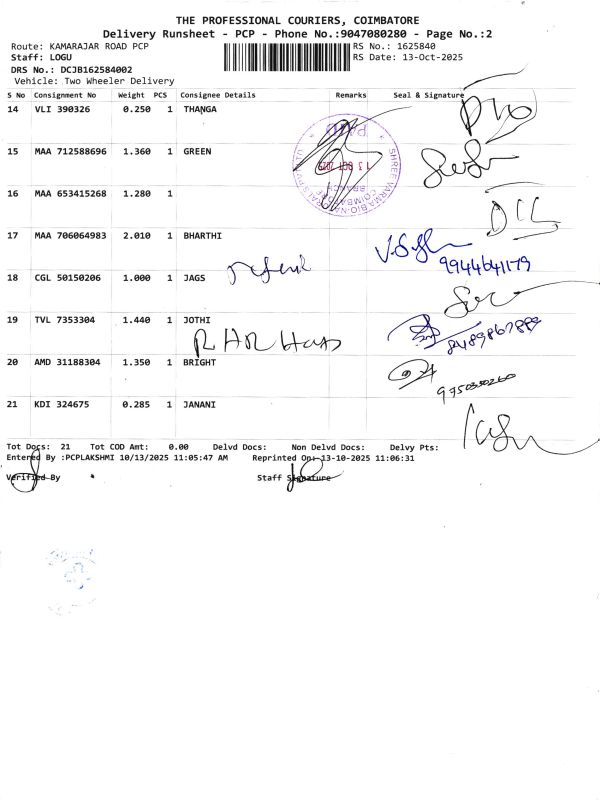 THE PROFESSIONAL COURIERS, COIMBATORE
Delivery Runsheet - PCP - Phone No.:9047080280 - Page No.:2
Route: KAMARAJAR ROAD PCP RS No.: 1625840
Staff: LOGU RS Date: 13-Oct-2025
DRS No.: DCJB162584002
Vehicle: Two Wheeler Delivery
S No Consignment No Weight PCS Consignee Details Remarks Seal & Signature
14 VLI 390326 0.250 1 THANGA
15 MAA 712588696 1.360 1 GREEN
16 MAA 653415268 1.280 1
17 MAA 706064983 2.010 1 BHARTHI
9944641179
18 CGL 50150206 1.000 1 JAGS
19 TVL 7353304 1.440 1 JOTHI
20 AMD 31188304 1.350 1 BRIGHT
21 KDI 324675 0.285 1 JANANI
Tot Docs: 21 Tot COD Amt: 0.00 Delvd Docs: Non Delvd Docs: Delvy Pts:
Entered By :PCPLAKSHMI 10/13/2025 11:05:47 AM Reprinted On: 13-10-2025 11:06:31
Verified By Staff Signature